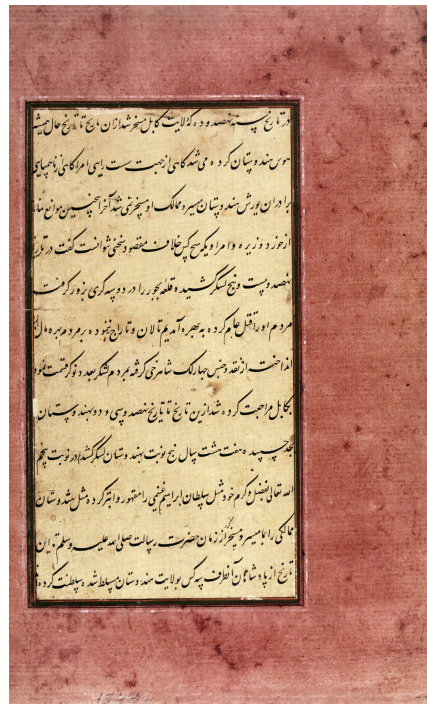 در تاریخ سنه نهصد و ده که ولایت کابل مسخر شد ازان تاریخ تا تاریخ حال همیشه
هوس هندوستان کرده می شد کاهی از جهت سست رایی امرا کاهی از ناهمپایی
برادران یورش هندوستان میسر و ممالک او مسخر نمی شد آخر اینچنین موانع نماند
از خورد و زیره و امرا و یکه هیچ کس خلاف مقصود سخنی نتوانست کفت در تاریخ
نهصد و بیست و پنج لشکر کشیده قلعه بجور را در دو سه کری بزور کرفته
مردم او را قتل عام کرده به بهره آمدیم تالان و تاراج ننموده بر مردم بهره مال
انداخته از نقد و جنس چهار لک شاهرخی کرفته بمردم لشکر بعدد نوکر قسمت نموده
بکابل مراجعت کرده شد ازین تاریخ تا تاریخ نهصد و سی و دو بهندوستان
بجد چسپیده هفت هشت سال پنج نوبت بهندوستان لشکر کشیدم در نوبت پنجم
الله تعالی بفضل و کرم خود مثل سلطان ابراهیم غنیمی را مقهور و ابتر کرده مثل هندوستان
ممالکی را بما میسر و مسخر از زمان حضرت رسالت صلی الله علیه وسلم تا این
تاریخ از پادشاهان آن طرف سه کس بولایت هندوستان مسلط شده سلطنت کرده